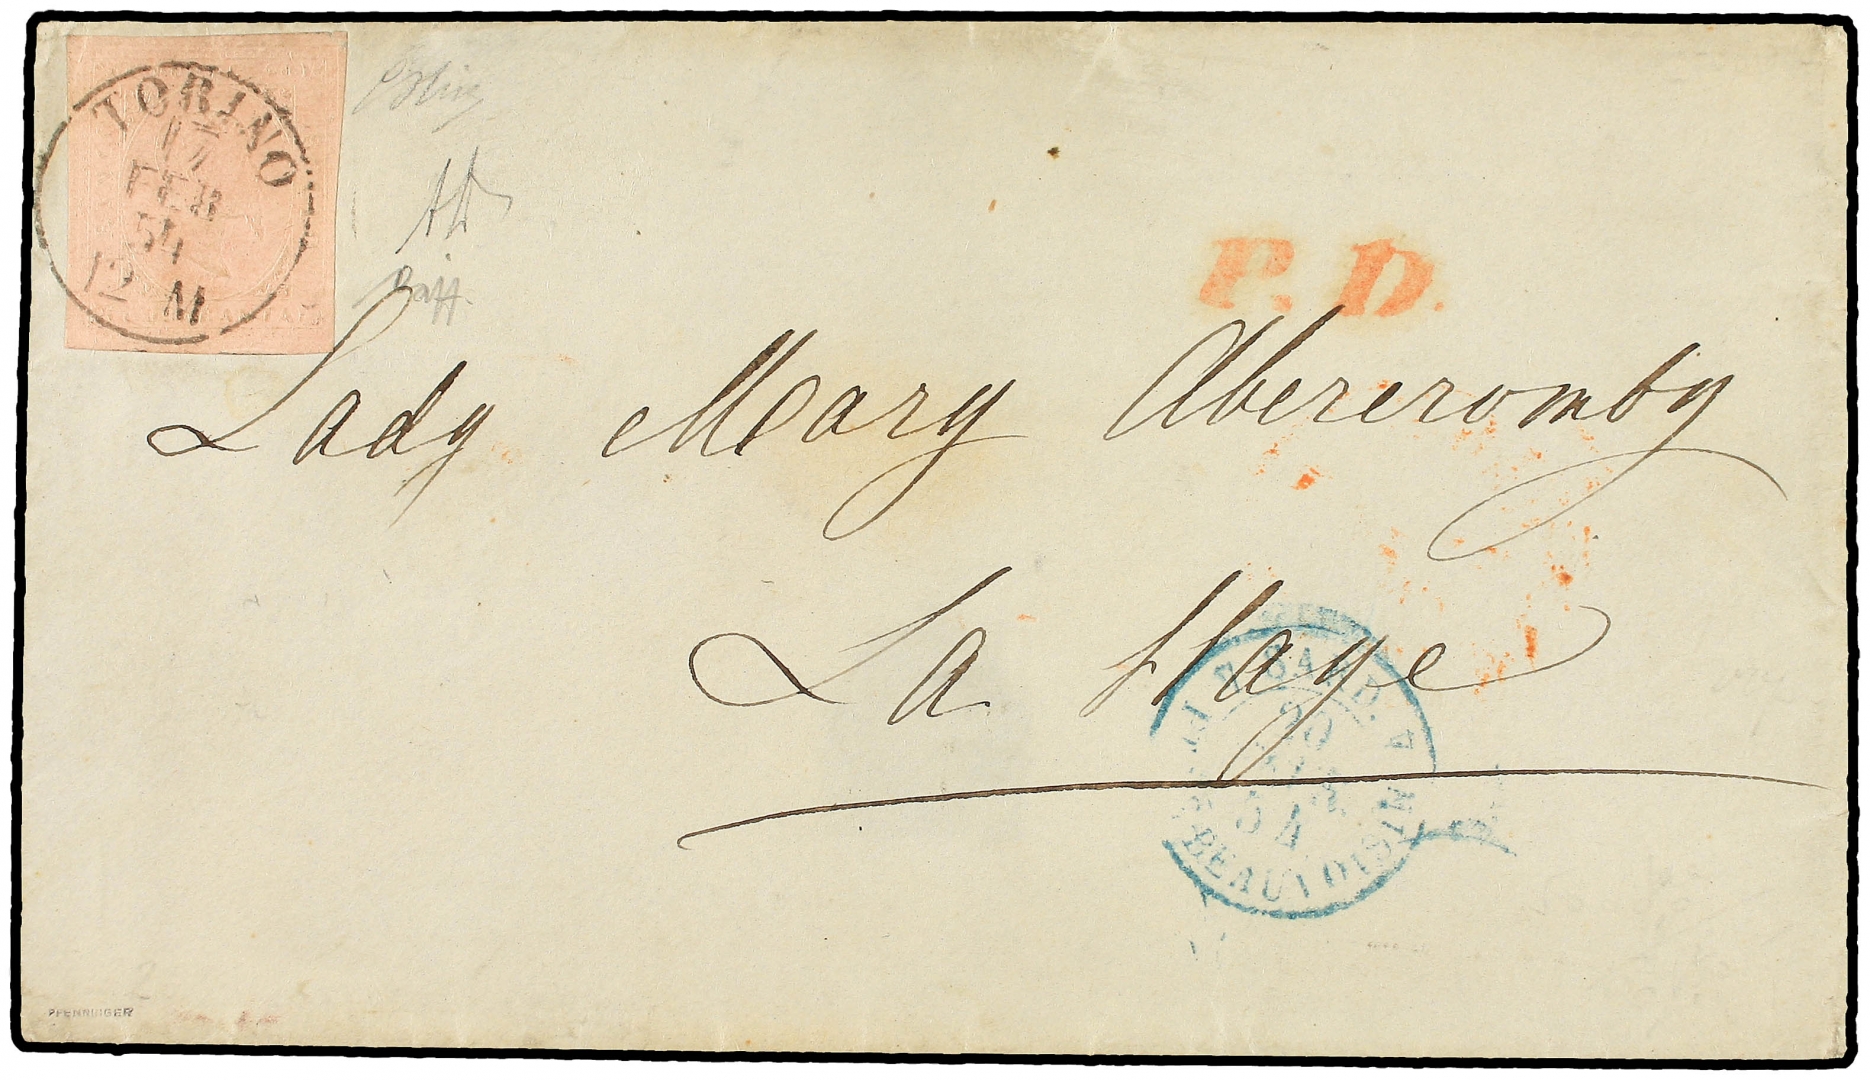 TORINO
17
FEB
54
12 M
P. D.
Lady Mary Abercromby
La Haye
SARD.
20
54
BEAUVOISIN
PFENNINGER